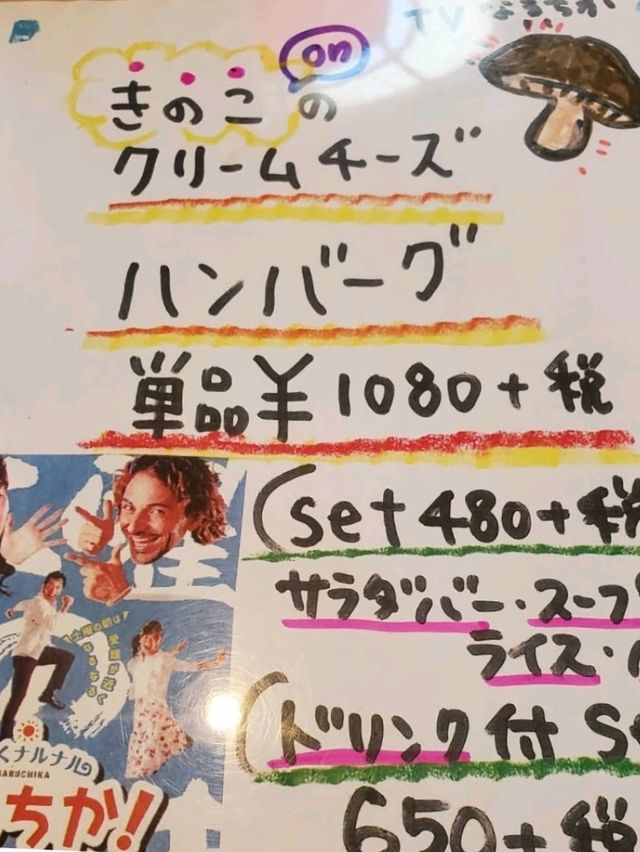 TV なるちか
on
きのこの
クリームチーズ
ハンバーグ
単品¥1080+税
(set 480+税
サラダバー・スープ
ライス・
(ドリンク付 S
650+税
土曜の朝は
愛媛が近く
なるなる
くナルナル
NARUCHIKA
ちか!